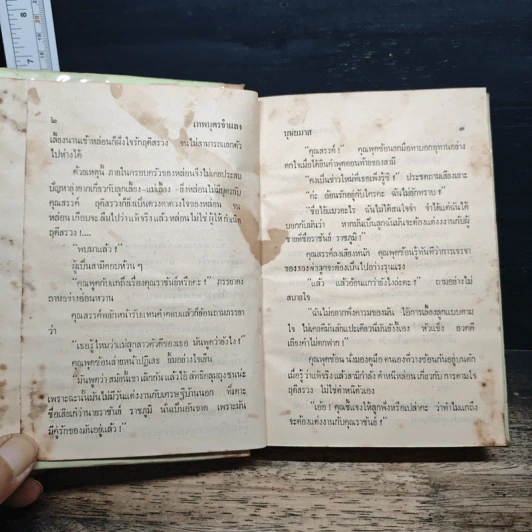 ๒
เทพบุตรจำแลง
เลี้ยงนานเข้าหล่อนก็ฝังใจรักฤดีสรวง จนไม่สามารถแยกตัว
ไปห่างได้
ด้วยเหตุนี้ ภายในครอบครัวของหล่อนจึงไม่เคยประสบ
ปัญหายุ่งยากเกี่ยวกับลูกเลี้ยง-แม่เลี้ยง
คุณสรรค์ ฤดีสรวงก็ยังเป็นดวงตาดวงใจของหล่อน จน
หล่อน เกือบจะ ลืมไปว่าแท้จริง แล้ว หล่อนไม่ใช่ ผู้ให้ กำเนิด
ฤดีสรวง !....
“พบมาแล้ว !”
ผู้เป็นสามีตอบห้วน ๆ
“คุณพูดกับแกถึงเรื่องคุณราชันย์หรือคะ !” ภรรยาคง
ถามอย่างอ่อนหวาน
คุณสรรค์พยักหน้ารับแทนคำตอบแล้วก็ย้อนถามภรรยา
ว่า
“เธอรู้ไหมว่าแม่ลูกสาวตัวดีของเธอ มันพูดว่ายังไง !”
คุณพุดซ้อนส่ายหน้าปฏิเสธ ยิ้มอย่างใจเย็น
“มันพูดว่า สมัยนี้เขา เลิกกัน แล้วไอ้ ลัทธิคลุมถุงชนน่ะ
เพราะฉะนั้นมันไม่มีวันแต่งงานกับเศรษฐีบ้านนอก ที่เคาะ
ชื่อเสียงก้องนายราชันย์ ราชภูมิ นั่นเป็นอันขาด เพราะมัน
มีคู่รักของมันอยู่แล้ว !”
บุษยมาส
๓
“คุณสรรค์ !” คุณพุดซ้อนยกมือทาบอกอุทานอย่าง
ตกใจเมื่อได้ยินคำพูดตอนท้ายของสามี
“คงเป็นข่าวใหม่ที่เธอเพิ่งรู้ซิ !” ประชดถามเสียงเยาะ
“ก็ะ ย้อนรักอยู่กับใครคะ ฉันไม่ยักทราบ !”
“ชื่อไอ้แมวอะไร ฉันไม่ได้สนใจจำ จำได้แต่ฉันได้
บอกกับมันว่า หากมันเป็นลูกฉันมันจะต้องแต่งงานกับผู้
ชายที่ชื่อราชันย์ ราชภูมิ !”
คุณสรรค์ลงเสียงหนัก คุณพุดซ้อนรู้ทันทีว่าการเจรจา
ของสองพ่อลูกจะต้องเป็นไปอย่างรุนแรง
“แล้ว แล้วย้อนแกว่ายังไงล่ะคะ !” ถามอย่างไม่
สบายใจ
“มันไม่อยากฟังความของมัน ไอ้การเลี้ยงลูกแบบตาม
ใจ ไม่เคยตีมันสักแปะเดียวนี่มันยังไงเอง หัวแข็ง อวดดี
เถียงคำไม่ตกฟาก !”
คุณพุดซ้อน นั่งมองคู่มือ ตนเองที่วางซ้อนกันอยู่บนตัก
เมื่อรู้ ว่าแท้จริง แล้วสามีกำลัง ตำหนิหล่อน เกี่ยวกับ การตามใจ
ฤดีสรวง ไม่ใช่ตำหนิตัวเอง
“เอ้อ ! คุณชี้แจงให้ลูกฟังหรือเปล่าคะ ว่าทำไมแกถึง
จะต้องแต่งงานกับคุณราชันย์ !”